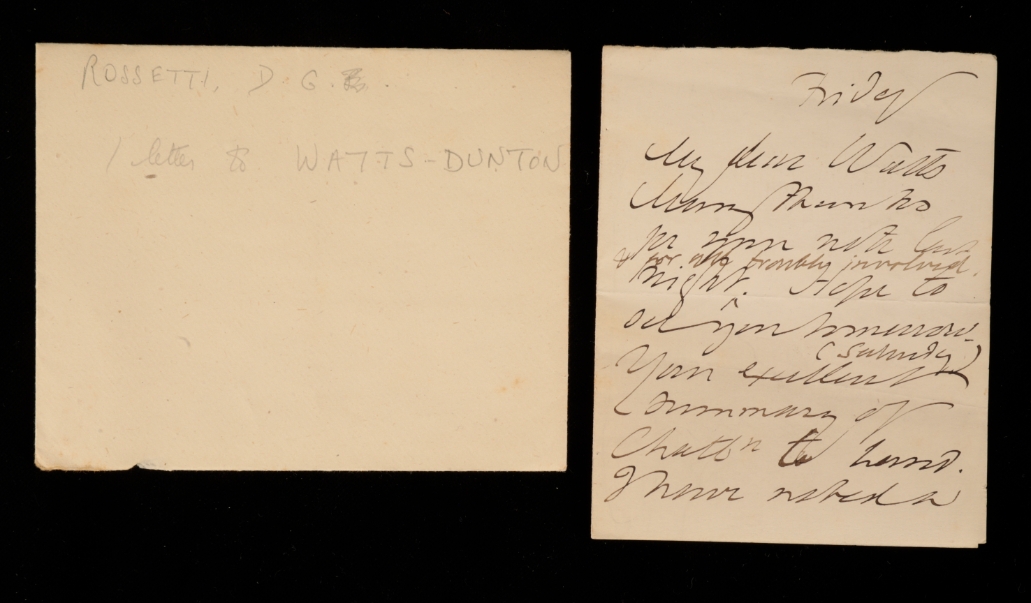 ROSSETTI, D. G.
1 letter to WATTS-DUNTON
Friday
My dear Watts
Many thanks
for your note last
& for all trouble involved.
night. Hope to
see you tomorrow
(Saturday)
Your excellent
summary of
Chattn to hand.
I have noted a